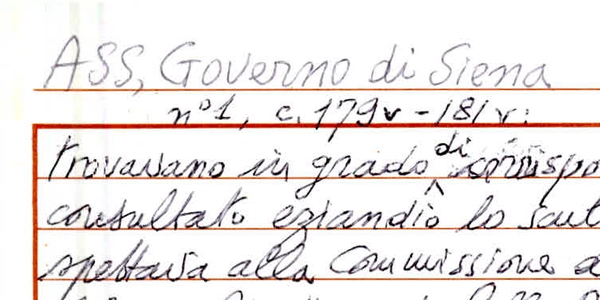 ASS, Governo di Siena
n° 1, c. 179v - 181v:
trovavano in grado di
consultato eziandio lo
spettava alla Commissione